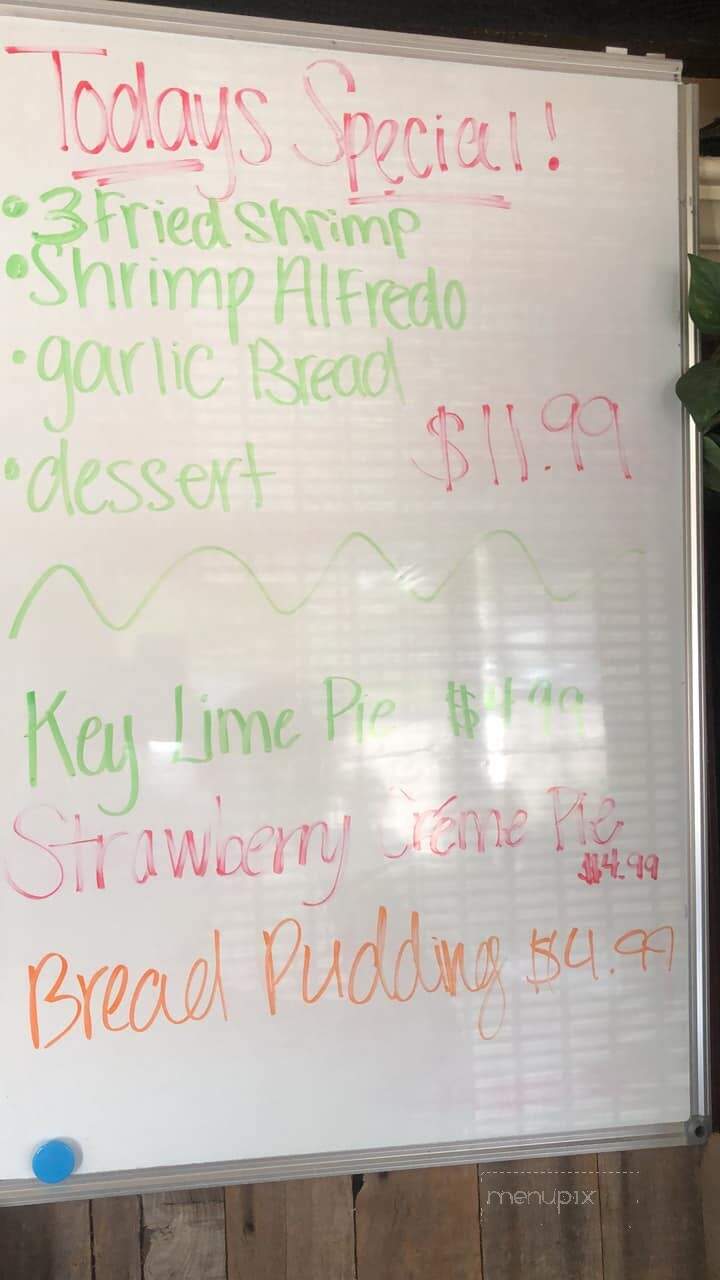 Todays Special!
• 3 Fried Shrimp
• Shrimp Alfredo
• garlic Bread
$11.99
• dessert
Key Lime Pie $4.99
Strawberry Créme Pie
$4.99
Bread Pudding $4.99
menupix